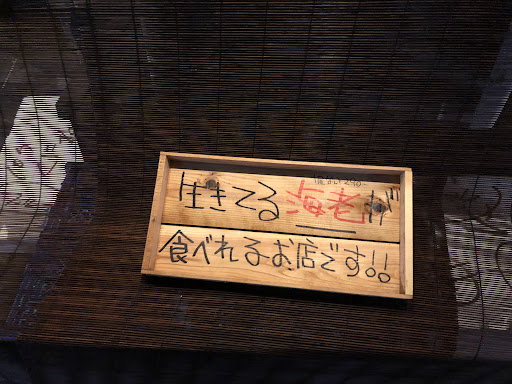 生きてる海老が
食べれるお店です!!